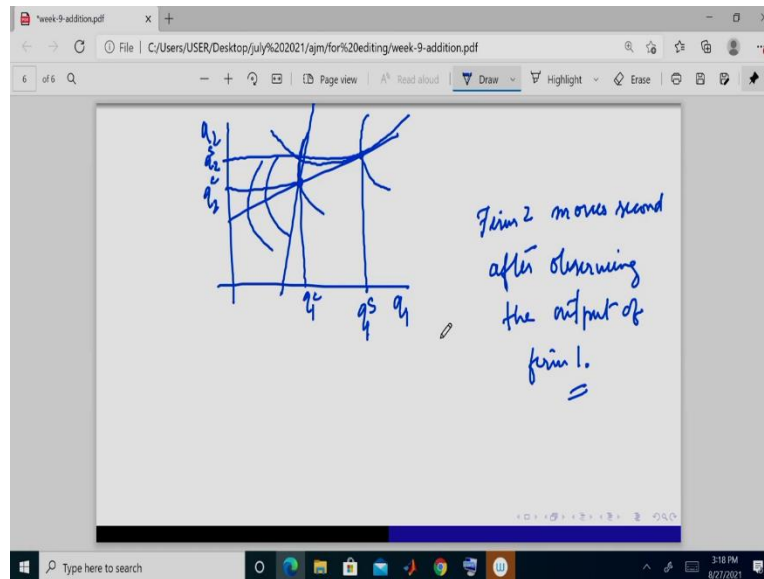 *week-9-addition.pdf
File | C:/Users/USER/Desktop/july%202021/ajm/for%20editing/week-9-addition.pdf
6 of 6 Page view Read aloud Draw Highlight Erase
q₂
q₂ˢ
q₂ᶜ
q₁ᶜ q₁ˢ q₁
Firm 2 moves second
after observing
the output of
firm 1.
Type here to search
3:18 PM
8/27/2021